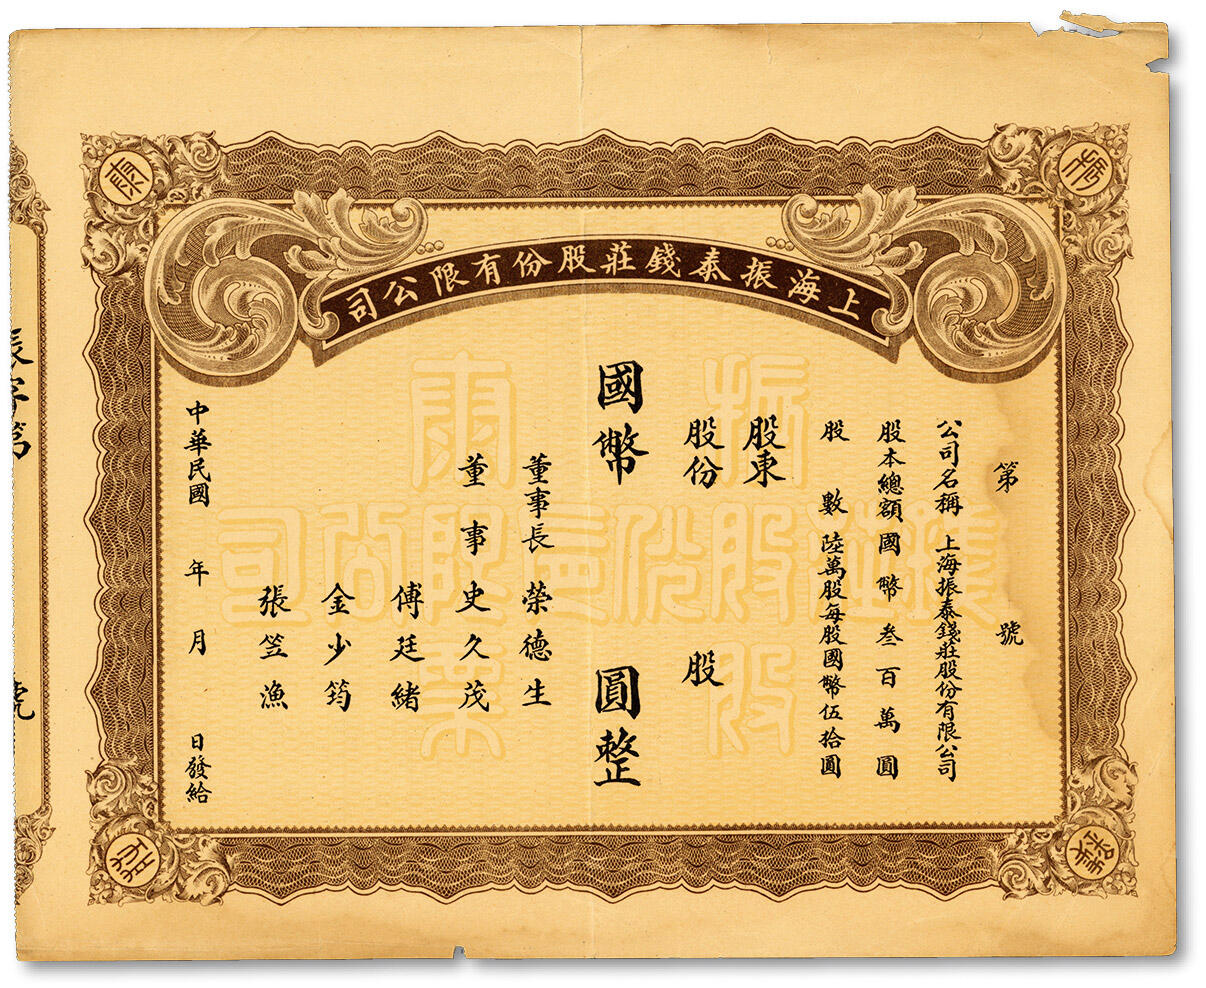 上海振泰錢莊股份有限公司
第　號
公司名稱　上海振泰錢莊股份有限公司
股本總額國幣叁百萬圓
股　數　陸萬股每股國幣伍拾圓
股東
股份　股
國幣　圓整
董事長　榮德生
董事　史久茂
傅廷緒
金少筠
張笠漁
中華民國　年　月　日發給
振
泰
錢
莊
振字第　號